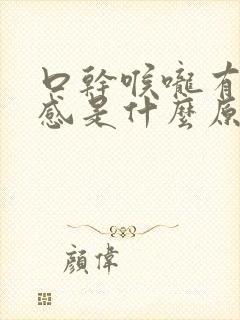 口幹喉嚨有
感是什麼原
顏偉